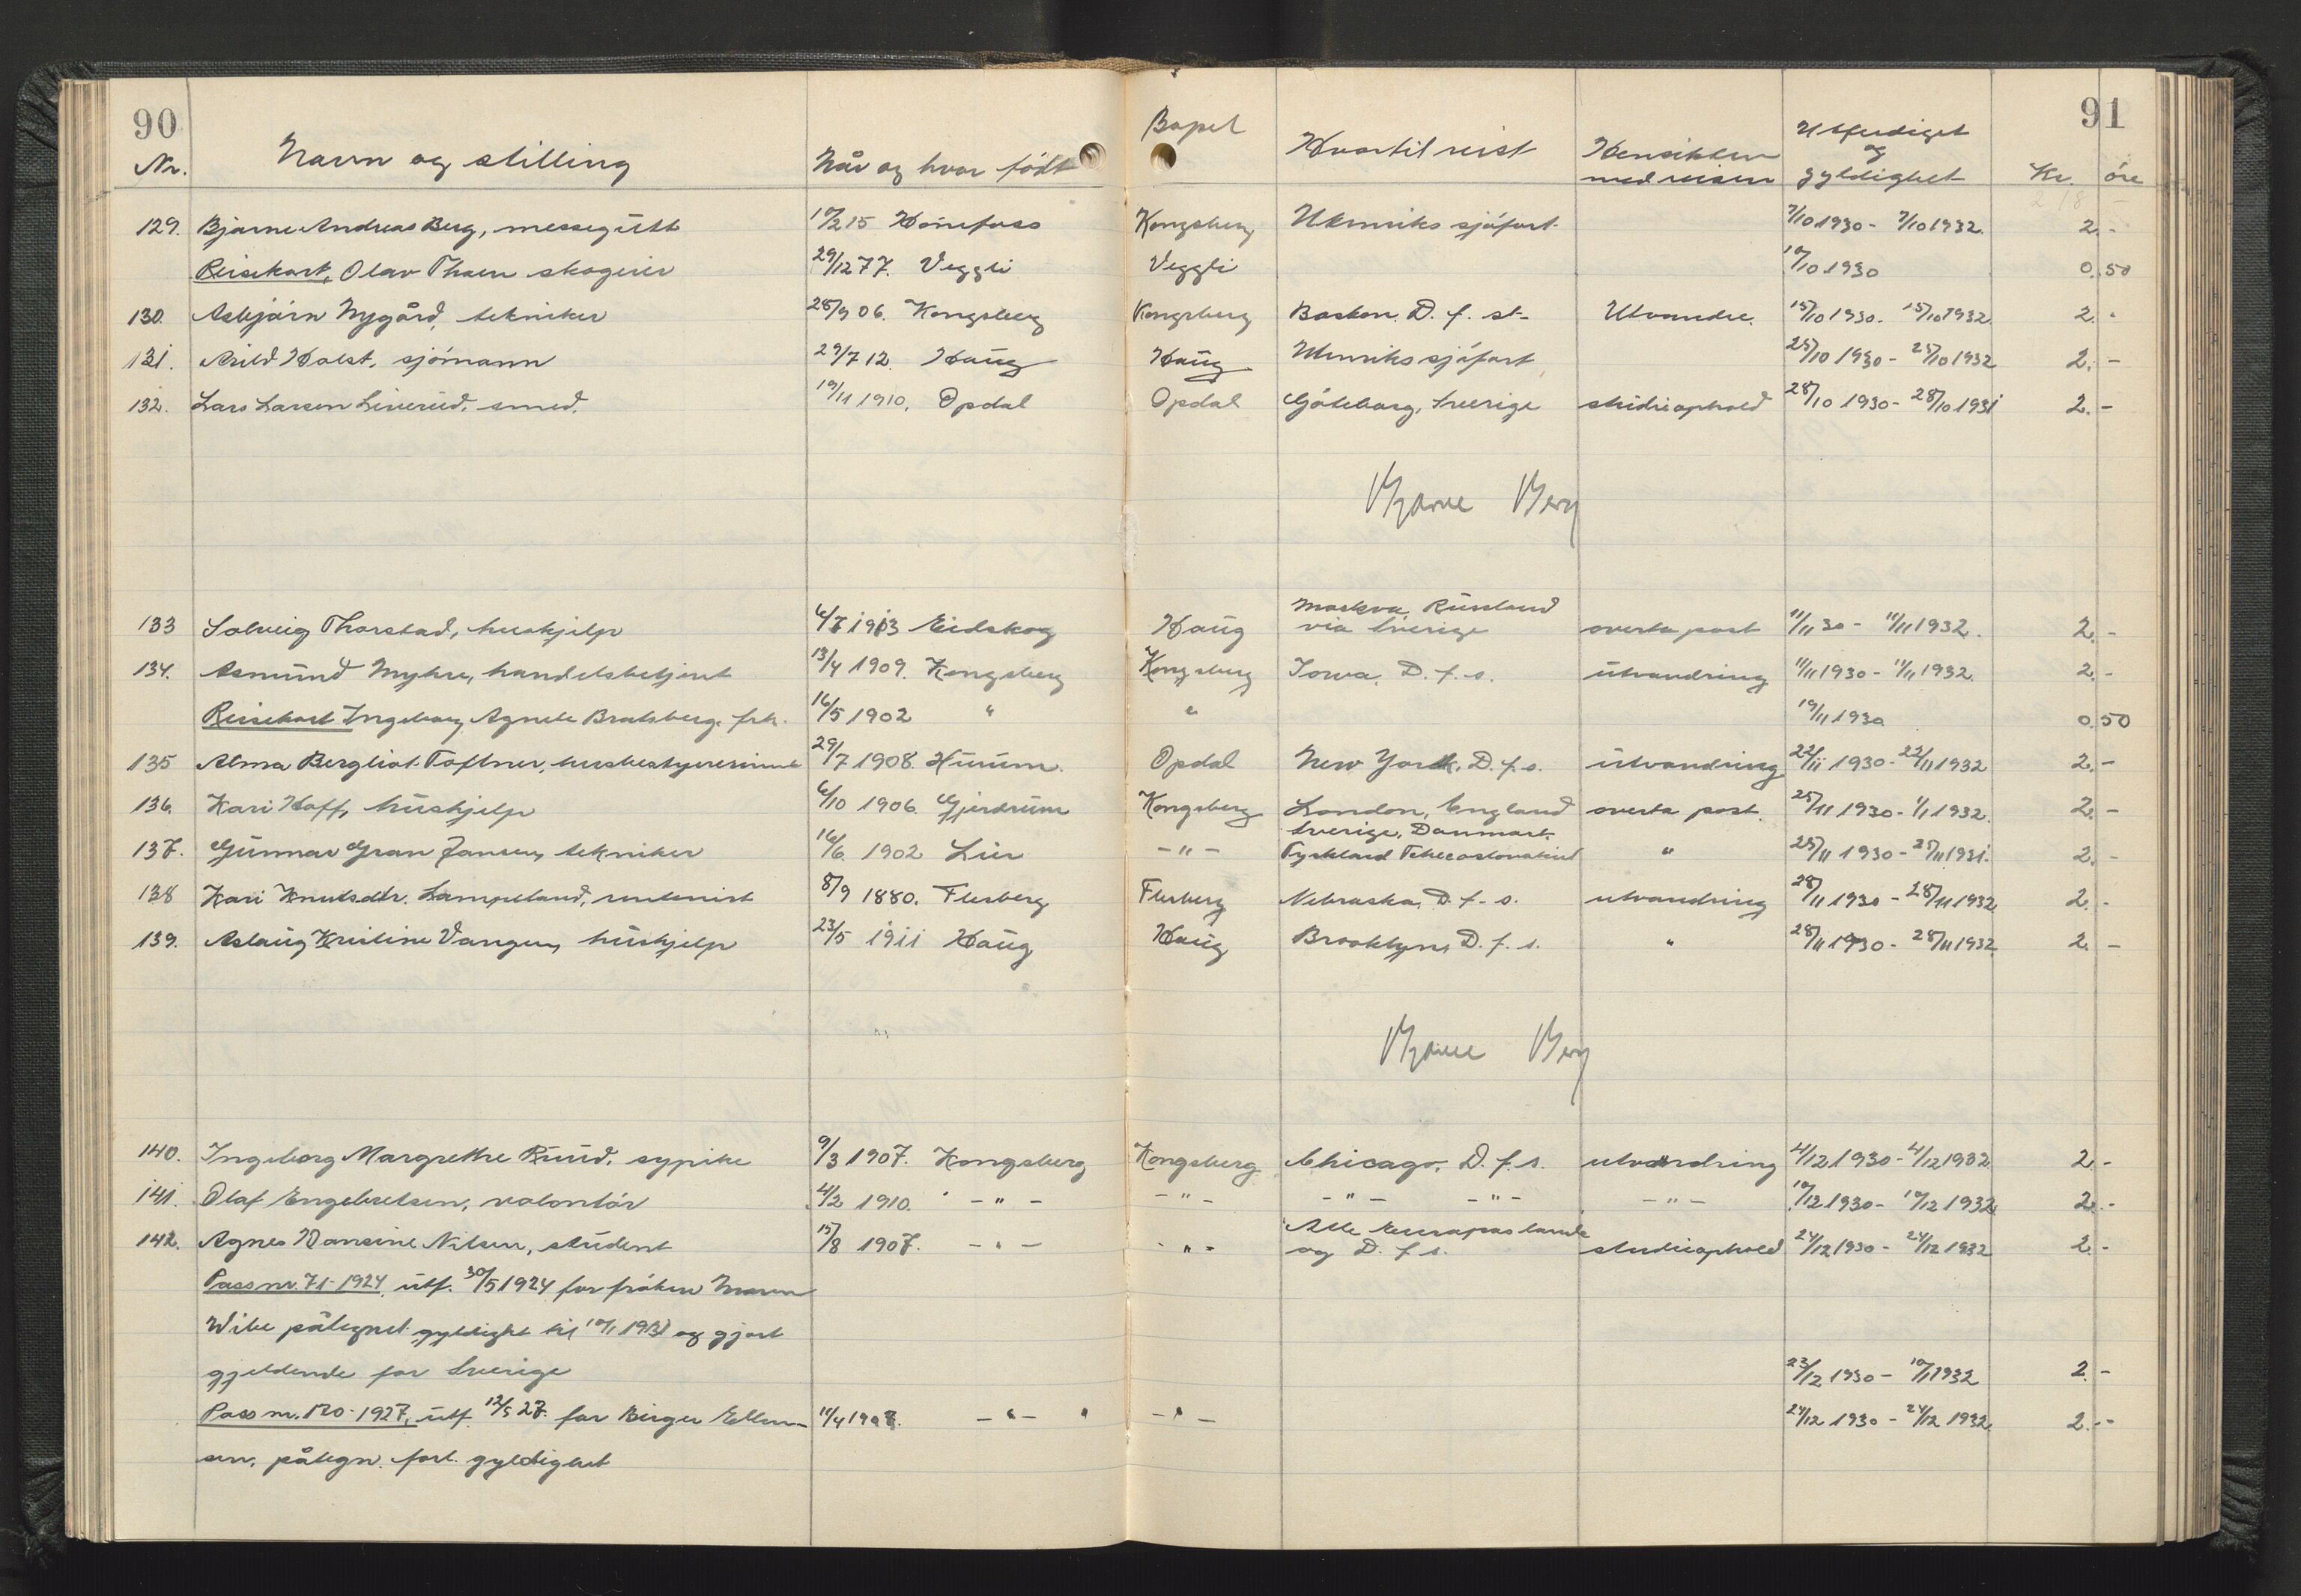 90
91
Nr. Navn og stilling Når og hvor født Bopel Hvortil reist Hensikten med reisen Utferdiget og gyldighet Kr. öre
129. Bjarne Andreas Berg, messegutt 17/2 15 Hönefoss Kongsberg Utenriks sjöfart. 7/10 1930 - 7/10 1932. 2. -
Reisekort, Olav Thoen skogeier 29/12 77. Veggli Veggli 10/10 1930 0. 50
130. Asbjörn Nygård, tekniker 28/9 06. Kongsberg Kongsberg Boston. D. f. st- Utvandre. 15/10 1930. - 15/10 1932. 2. -
131. Arild Holst, sjömann 29/7 12. Haug Haug Utenriks sjöfart 25/10 1930 - 25/10 1932 2. -
132. Lars Larsen Liverud, smed. 19/11 1910, Opdal Opdal Göteborg, Sverige studieophold 28/10 1930 - 28/10 1931 2. -
Bjarne Berg
Moskva, Russland
133 Solveig Thorstad, huskjelp 6/7 1913 Eidskog Haug via Sverige overta post 11/11 30 - 11/11 1932. 2. -
134. Asmund Myhre, handelsbetjent 13/4 1909. Kongsberg Kongsberg Iowa, D. f. s. utvandring 11/11 1930 - 11/11 1932. 2. -
Reisekort Ingeborg Agnete Bratsberg, frk. 16/5 1902 " " 19/11 1930 0. 50
135 Alma Bergliot Toftner, husbestyrerinne 29/7 1908. Hurum. Opdal New York, D. f. s. utvandring 22/11 1930 - 22/11 1932 2. -
136. Kari Hoff, huskjelp 6/10 1906. Gjerdrum Kongsberg London, England overta post. 25/11 1930 - 1/1 1932. 2. -
Sverige, Danmark.
137. Gunnar Gran Jansen, tekniker 16/6. 1902 Lier - " - Tyskland Tchecoslovakiet " 25/11 1930 - 25/11 1931. 2. -
138 Kari Knutsdtr. Lampeland, rentenist 8/9 1880. Flesberg Flesberg Nebraska, D. f. s. utvandring 28/11 1930 - 28/11 1932 2. -
139. Aslaug Kristine Vangen, huskjelp 23/5 1911 Haug Haug Brooklyn, D. f. s. " 28/11 1930 - 28/11 1932 2. -
Bjarne Berg
140. Ingeborg Margrethe Ruud, sypike 9/3 1907. Kongsberg Kongsberg Chicago, D. f. s. utvandring 4/12 1930 - 4/12 1932 2. -
141. Olaf Engebretsen, volontör 4/2 1910. - " - - " - - " - - " - - " - 10/12 1930 - 10/12 1932 2. -
Alle Europas lande
142. Agnes Hansine Nilsen, student 15/8 1907. - " - - " - og D. f. s. studieophold 24/12 1930 - 24/12 1932 2. -
Pass nr. 71 - 1924, utf. 30/5 1924 for fröken Maren
Wibe påtegnet gyldight til og gjort
gjeldende for Sverige 23/12 1930 - 10/1 1932 2. -
Pass nr. 120 - 1927, utf. 12/5 27. for Birger Ellen- 11/4 1907. - " - - " - 24/12 1930 - 24/12 1932 2. -
sen, påtegn. forl. gyldighet